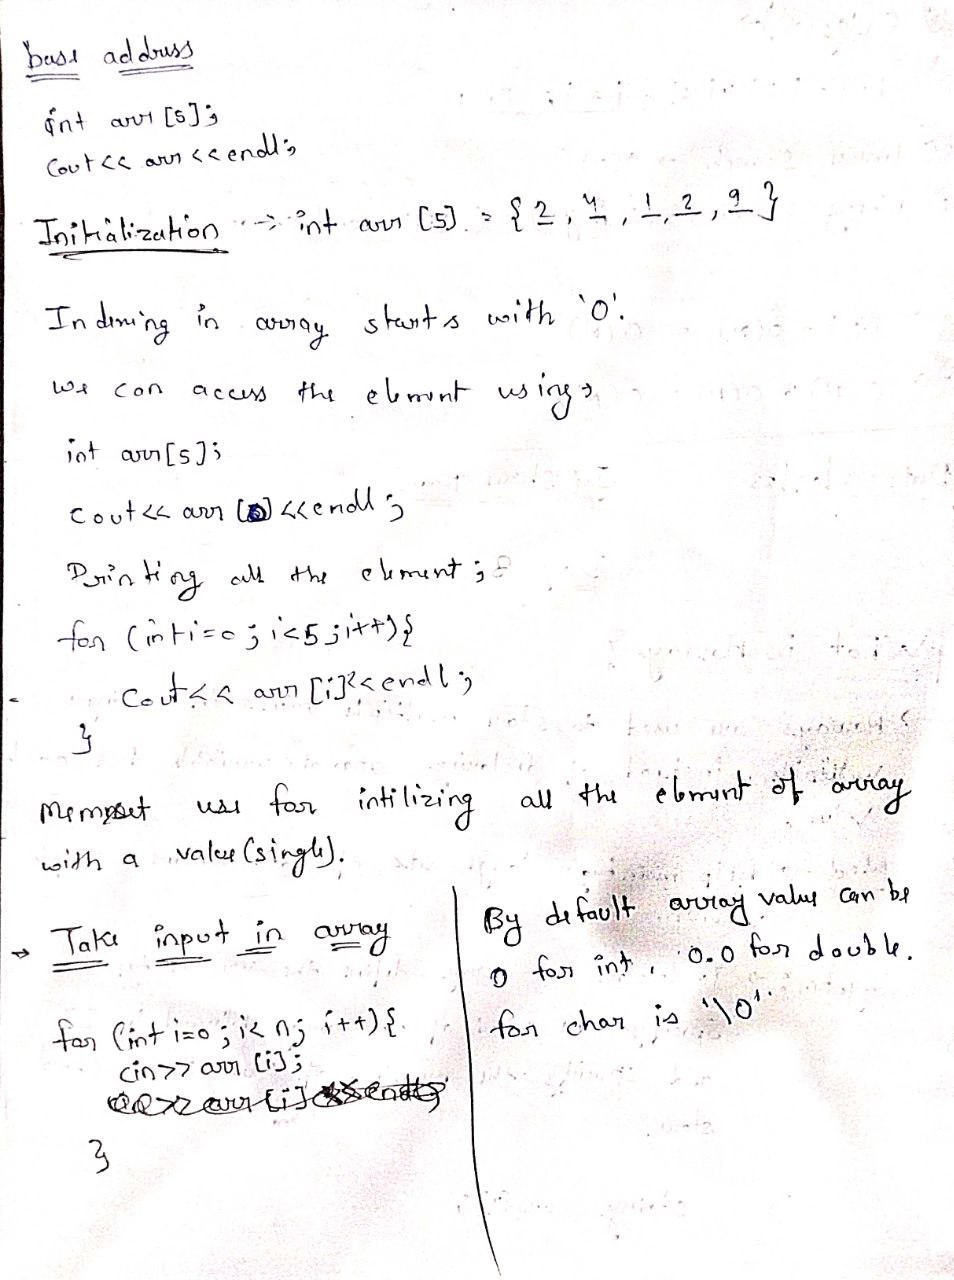 base address
int arr[5];
Cout<< arr <<endl;
Initialization --> int arr [5] = {2, 4, 1, 2, 9}
Indexing in array starts with '0'.
we can access the element using,
int arr[5];
Cout<< arr [0] <<endl;
Printing all the element;
for (int i=0; i<5; i++){
Cout<< arr [i]<<endl;
}
Memset use for intilizing all the element of array
with a value (single).
→ Take input in array
for (int i=0; i< n; i++){
cin>> arr [i];
}
By default array value can be
0 for int, 0.0 for double.
for char is '\0'